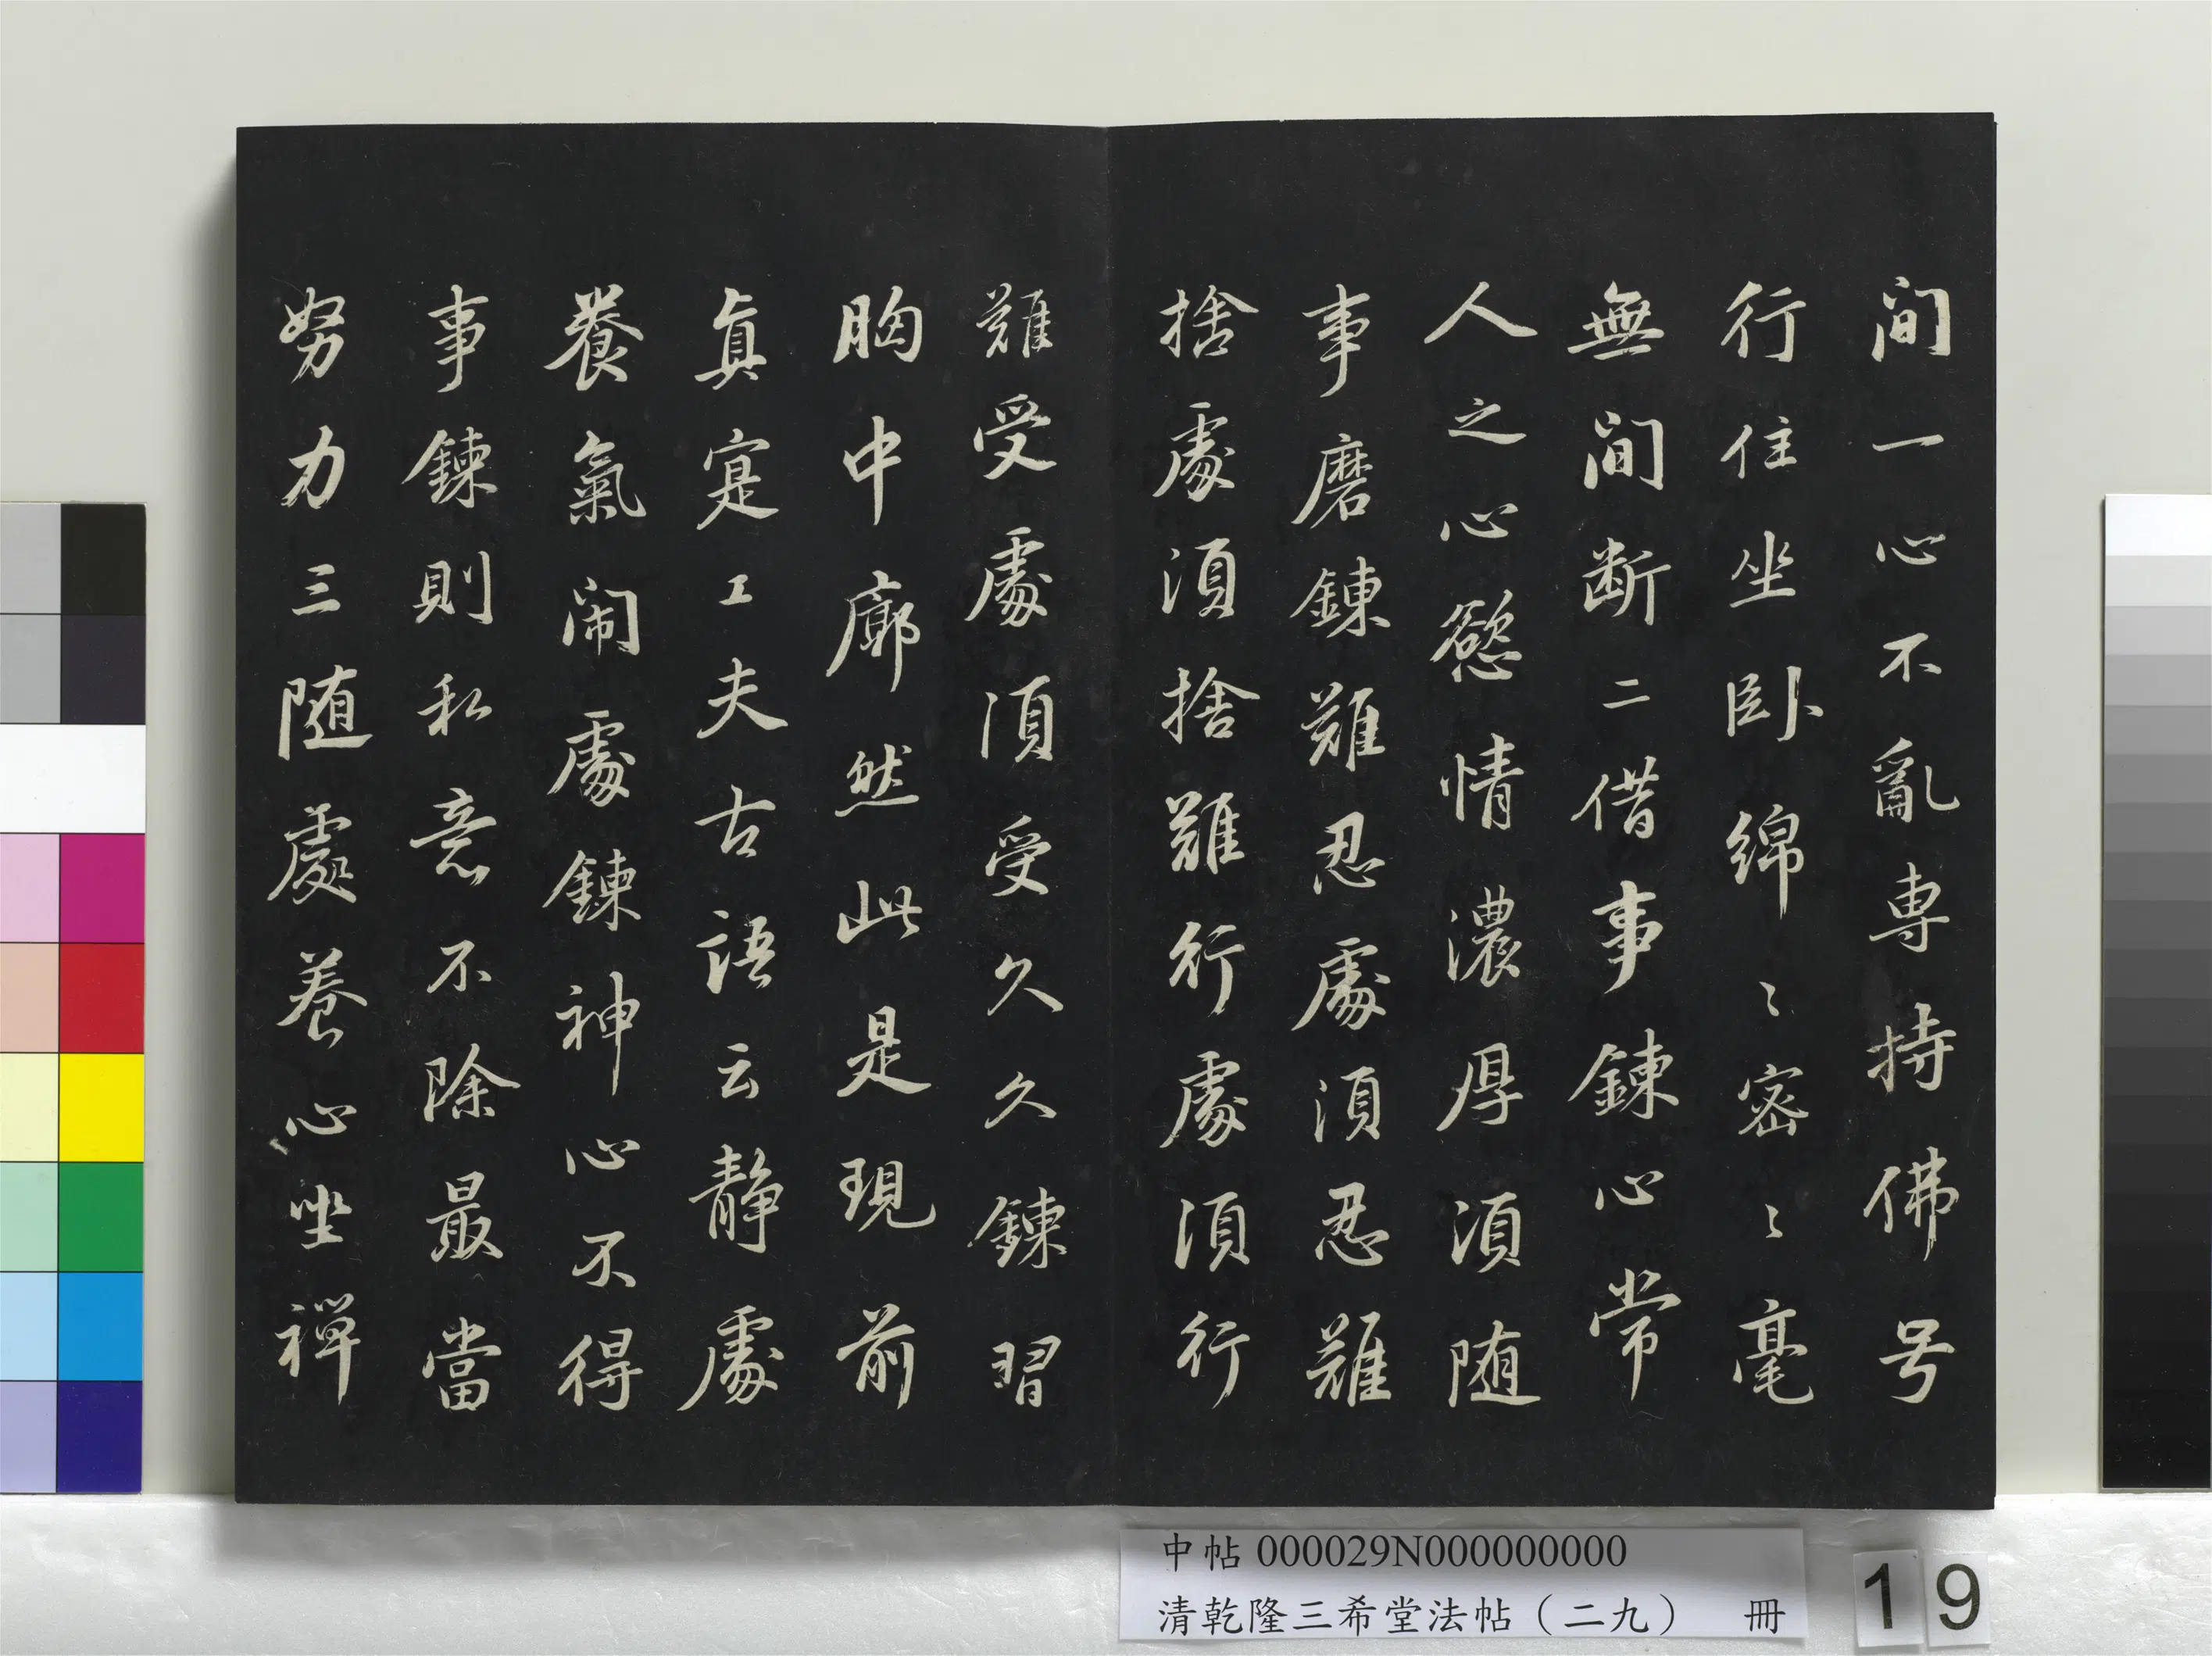 间一心不亂専持佛号
行住坐卧綿〻密〻毫
無间断二借事鍊心常
人之心慾情濃厚須随
事磨鍊難忍處須忍難
捨處須捨難行處須行
難受處須受久久鍊習
胸中廓然此是現前
真寔工夫古語云静處
養氣闹處鍊神心不得
事鍊則私意不除最當
努力三随處养心坐禅
中帖 000029N000000000
清乾隆三希堂法帖（二九） 冊
19